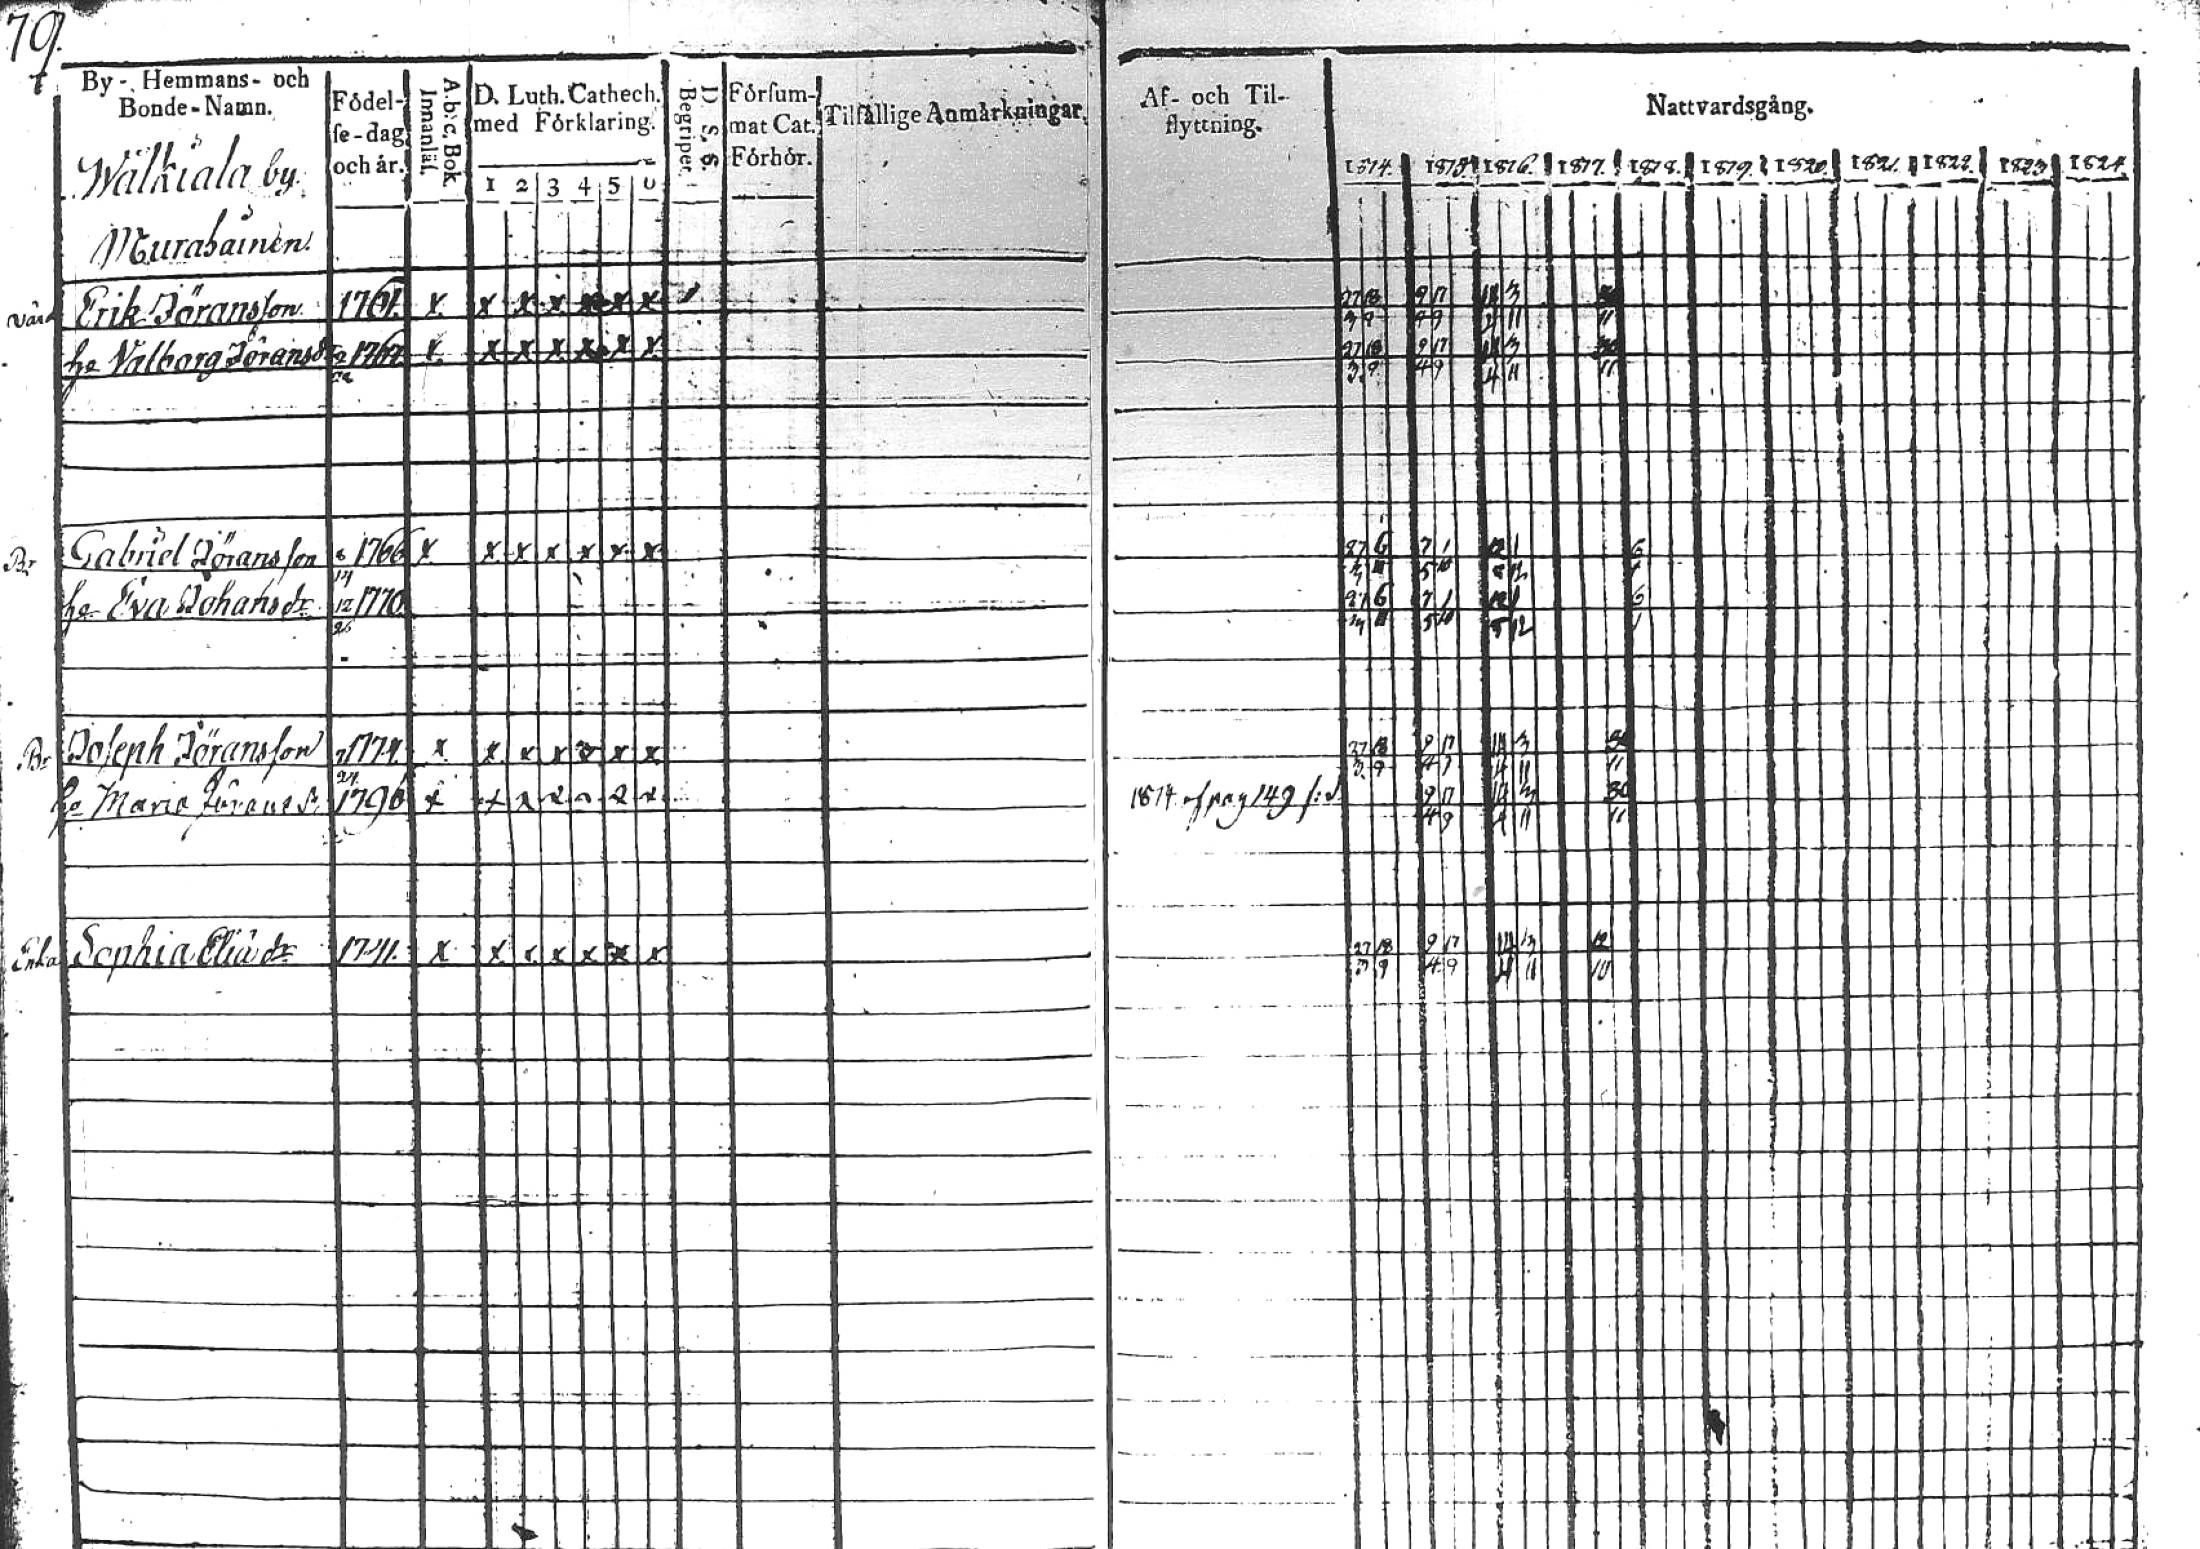 79.
By-, Hemmans- och
Bonde-Namn.
Födel-
se-dag
och år.
A. b. c. Bok.
Innanläs.
D. Luth. Cathech.
med Förklaring.
1 2 3 4 5 6
D. S. S.
Begriper.
Försum-
mat Cat.
Förhör.
Tilfällige Anmärkningar.
Af- och Til-
flyttning.
Nattvardsgång.
1814. 1815. 1816. 1817. 1818. 1819. 1820. 1821. 1822. 1823. 1824.
Wälkiala by.
Erik Jöransson 1761. x x x x x x x
27 18 9 17 3
3 9 4 9 11 11
hu Valborg Jöransdr x x x x x x x
27 18 9 17 3 30
3 9 4 9 4 11 11
Br Gabriel Jöransson 1766 x x x x x x x
27 6 7 1 1 6
5 10
hu Eva Johansdr 12 1770.
26
27 6 7 1 6
5 10 5 12 1
Br Joseph Jöransson 1774. x x x x x x x
24.
27 18 9 17 3 30
3 9 4 9 4 11 11
hu Maria Jöransd. x x x
1814. af pag 149
9 17 30
4 9 4 11 11
Enka Sophia Eliædr 1741. x x x x x x x
27 18 9 17 12
3 9 4 9 4 11 10